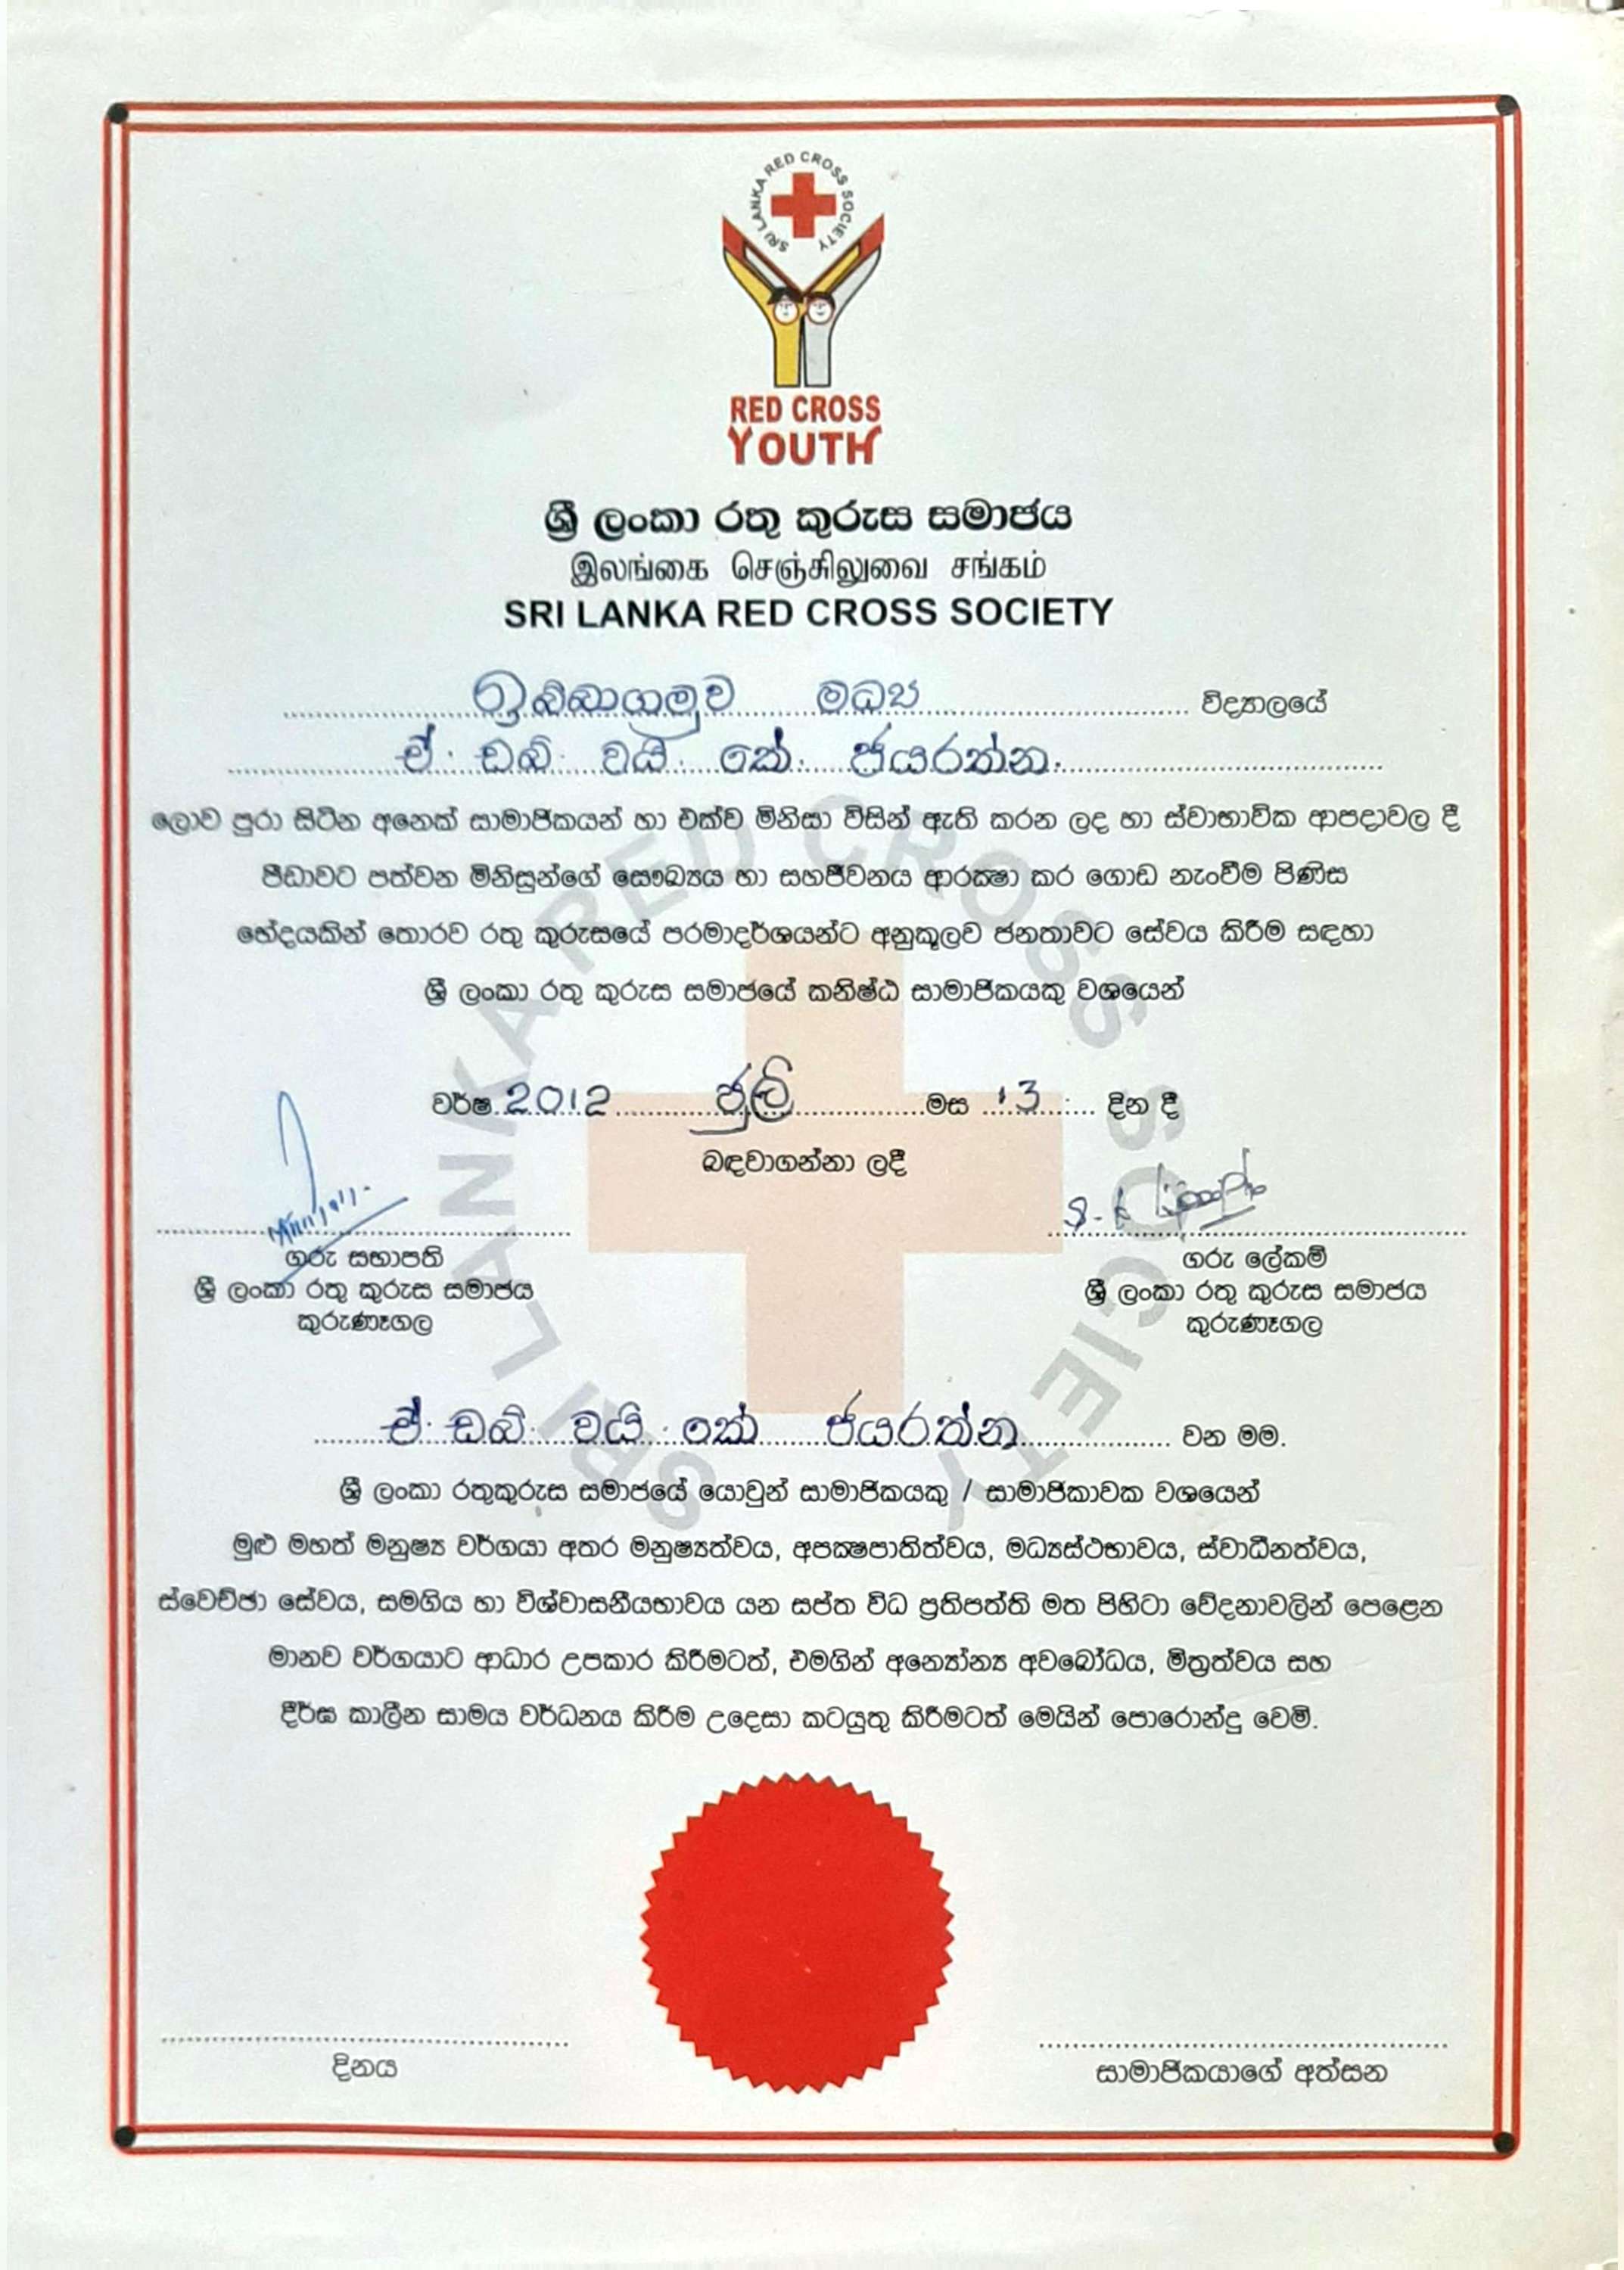 SRI LANKA RED CROSS SOCIETY
RED CROSS
YOUTH
ශ්‍රී ලංකා රතු කුරුස සමාජය
இலங்கை செஞ்சிலுவை சங்கம்
SRI LANKA RED CROSS SOCIETY
ඉබ්බාගමුව මධ්‍ය විද්‍යාලයේ
ඒ. ඩබ්. වයි. කේ. ජයරත්න.
ලොව පුරා සිටින අනෙක් සාමාජිකයන් හා එක්ව මිනිසා විසින් ඇති කරන ලද හා ස්වාභාවික ආපදාවල දී
පීඩාවට පත්වන මිනිසුන්ගේ සෞඛ්‍යය හා සහජීවනය ආරක්‍ෂා කර ගොඩ නැංවීම පිණිස
භේදයකින් තොරව රතු කුරුසයේ පරමාදර්ශයන්ට අනුකූලව ජනතාවට සේවය කිරීම සඳහා
ශ්‍රී ලංකා රතු කුරුස සමාජයේ කනිෂ්ඨ සාමාජිකයකු වශයෙන්
වර්ෂ 2012 ජුලි මස 13 දින දී
බඳවාගන්නා ලදී
ගරු සභාපති
ශ්‍රී ලංකා රතු කුරුස සමාජය
කුරුණෑගල
ගරු ලේකම්
ශ්‍රී ලංකා රතු කුරුස සමාජය
කුරුණෑගල
ඒ. ඩබ්. වයි. කේ ජයරත්න වන මම.
ශ්‍රී ලංකා රතුකුරුස සමාජයේ යොවුන් සාමාජිකයකු / සාමාජිකාවක වශයෙන්
මුළු මහත් මනුෂ්‍ය වර්ගයා අතර මනුෂ්‍යත්වය, අපක්‍ෂපාතිත්වය, මධ්‍යස්ථභාවය, ස්වාධීනත්වය,
ස්වෙච්ඡා සේවය, සමගිය හා විශ්වාසනීයභාවය යන සප්ත විධ ප්‍රතිපත්ති මත පිහිටා වේදනාවලින් පෙළෙන
මානව වර්ගයාට ආධාර උපකාර කිරීමටත්, එමගින් අන්‍යෝන්‍ය අවබෝධය, මිත්‍රත්වය සහ
දීර්ඝ කාලීන සාමය වර්ධනය කිරීම උදෙසා කටයුතු කිරීමටත් මෙයින් පොරොන්දු වෙමි.
දිනය
සාමාජිකයාගේ අත්සන
SRI LANKA RED CROSS SOCIETY